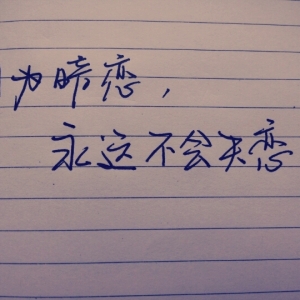 为暗恋，
永远不会失恋